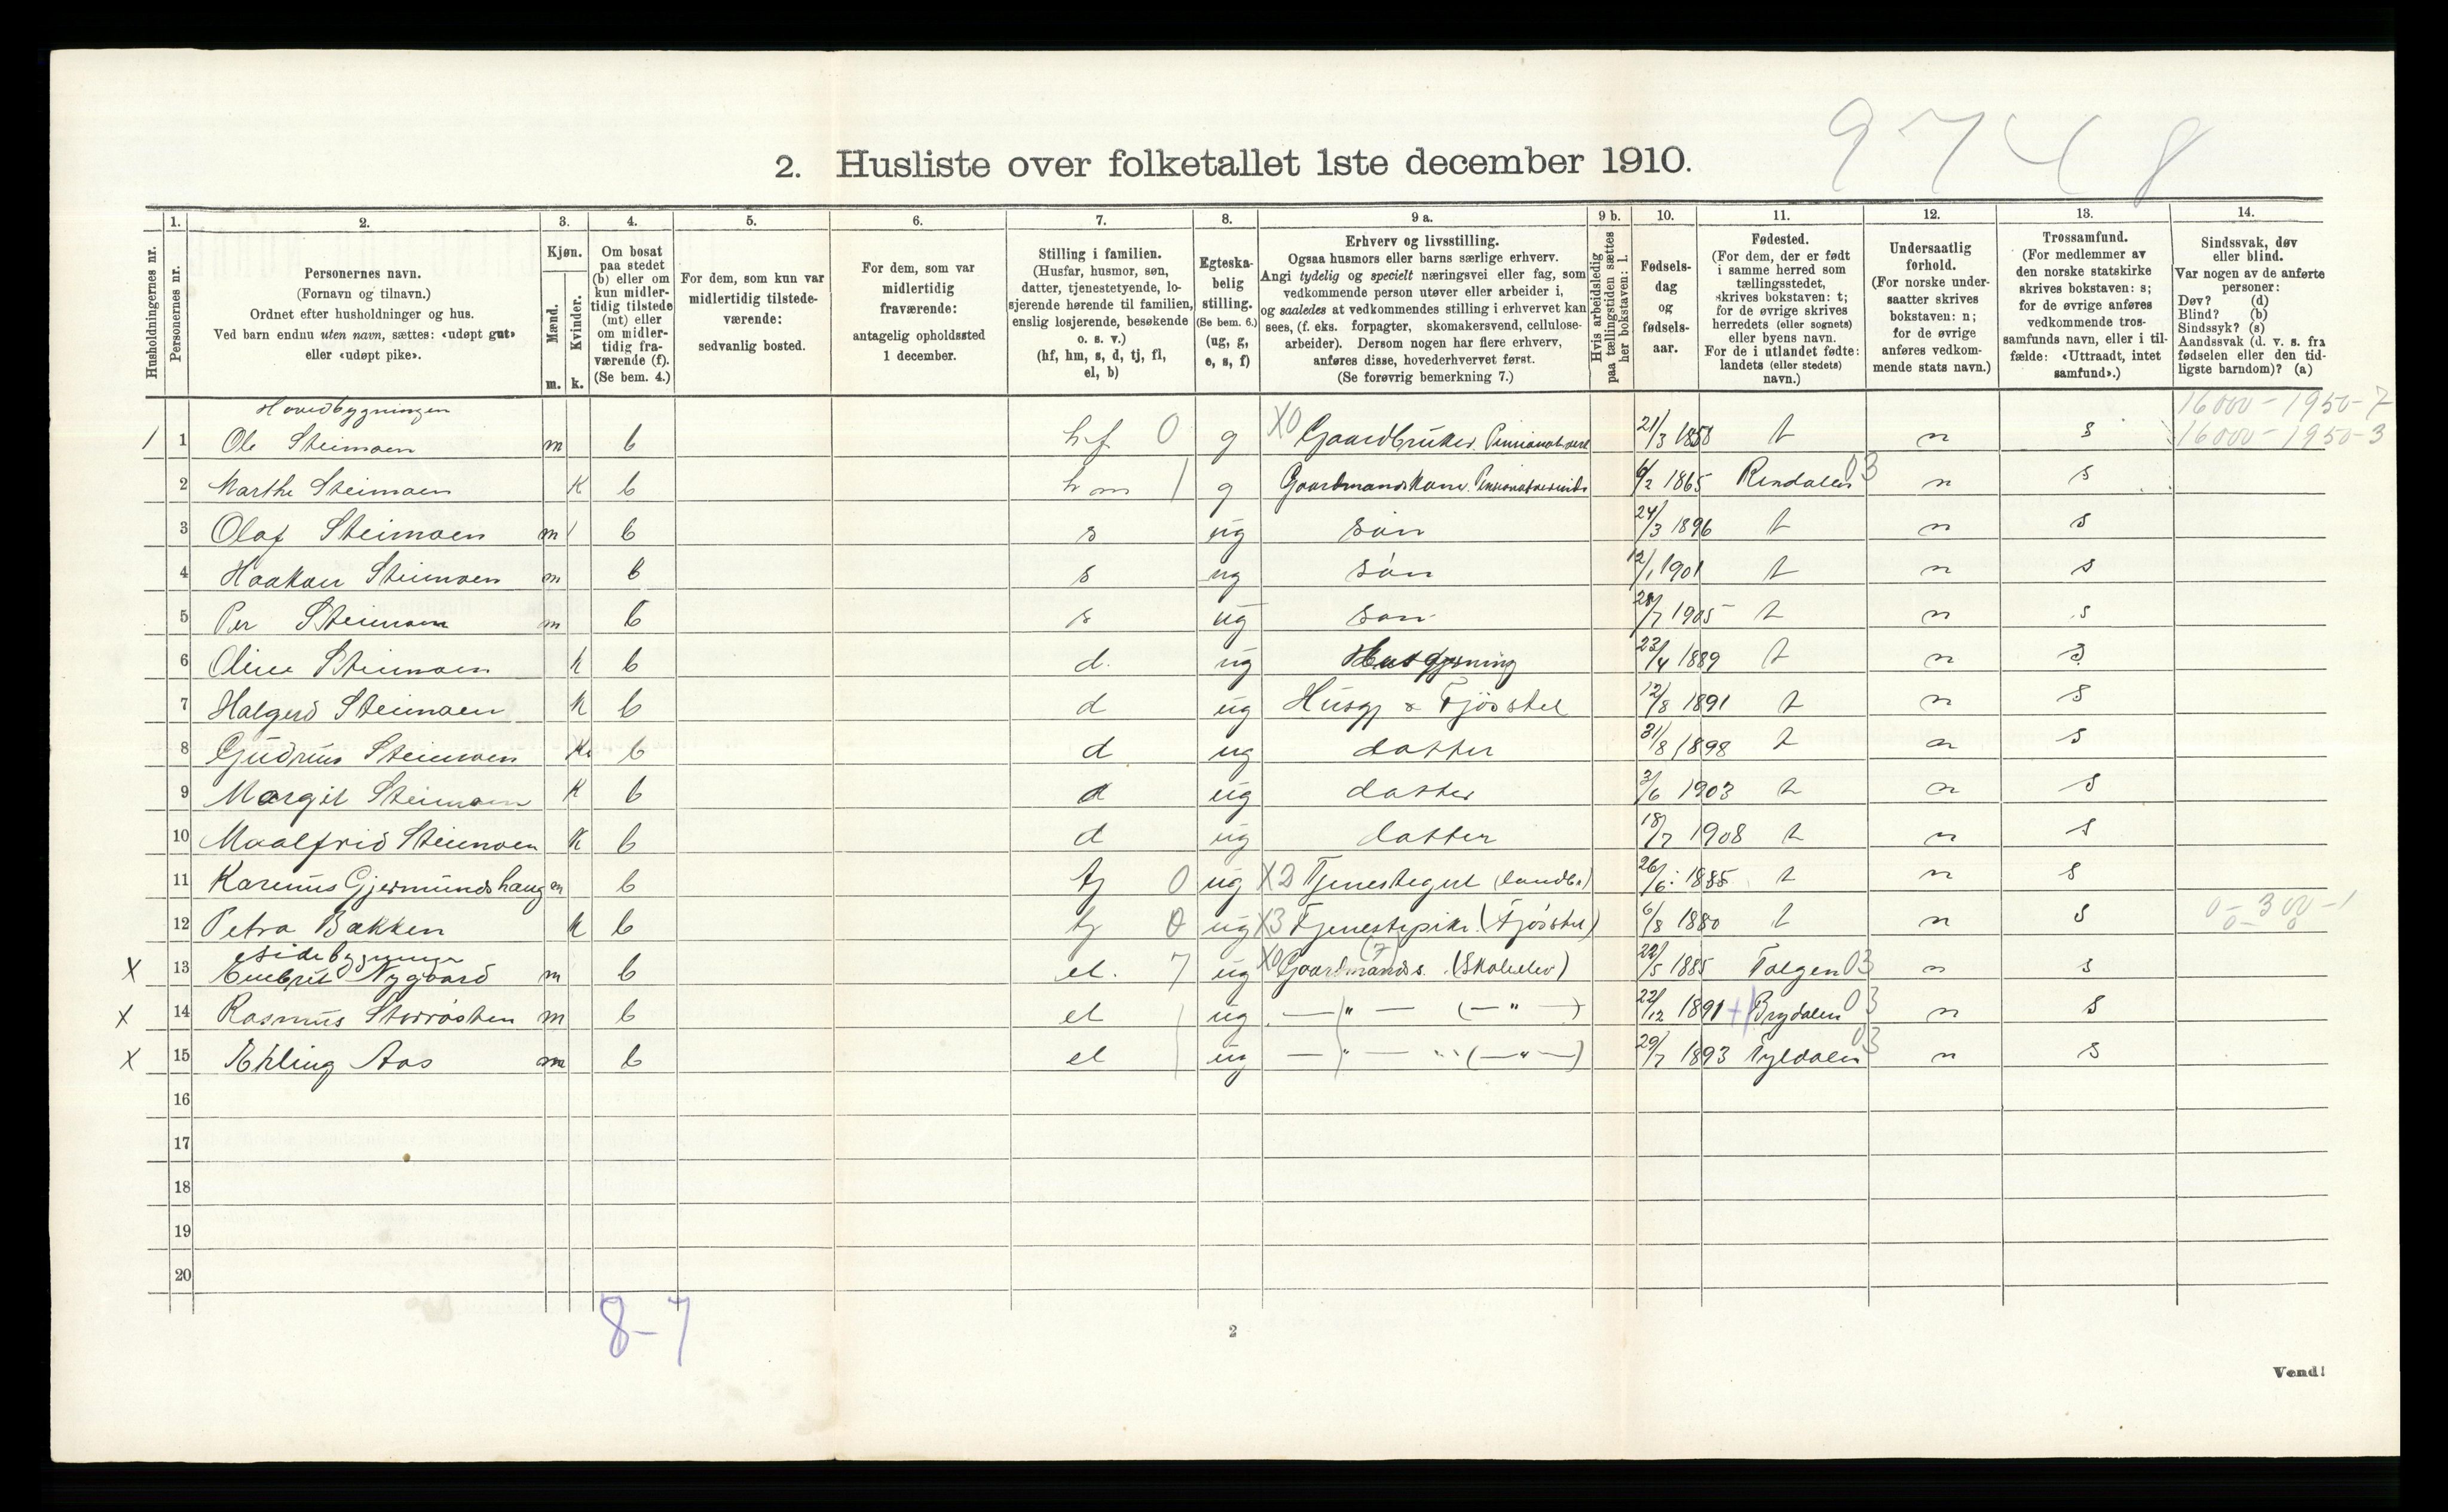 9748
2. Husliste over folketallet 1ste december 1910.
Husholdningernes nr.
1. Personernes nr.
2. Personernes navn.
(Fornavn og tilnavn.)
Ordnet efter husholdninger og hus.
Ved barn endnu uten navn, sættes: «udøpt gut»
eller «udøpt pike».
3. Kjøn.
Mænd. m.
Kvinder. k.
4. Om bosat
paa stedet
(b) eller om
kun midler-
tidig tilstede
(mt) eller
om midler-
tidig fra-
værende (f).
(Se bem. 4.)
5. For dem, som kun var
midlertidig tilstede-
værende:
sedvanlig bosted.
6. For dem, som var
midlertidig
fraværende:
antagelig opholdssted
1 december.
7. Stilling i familien.
(Husfar, husmor, søn,
datter, tjenestetyende, lo-
sjerende hørende til familien,
enslig losjerende, besøkende
o. s. v.)
(hf, hm, s, d, tj, fl,
el, b)
8. Egteska-
belig
stilling.
(Se bem. 6.)
(ug, g,
e, s, f)
9 a. Erhverv og livsstilling.
Ogsaa husmors eller barns særlige erhverv.
Angi tydelig og specielt næringsvei eller fag, som
vedkommende person utøver eller arbeider i,
og saaledes at vedkommendes stilling i erhvervet kan
sees, (f. eks. forpagter, skomakersvend, cellulose-
arbeider). Dersom nogen har flere erhverv,
anføres disse, hovederhvervet først.
(Se forøvrig bemerkning 7.)
9 b. Hvis arbeidsledig
paa tællingstiden sættes
her bokstaven: l.
10. Fødsels-
dag
og
fødsels-
aar.
11. Fødested.
(For dem, der er født
i samme herred som
tællingsstedet,
skrives bokstaven: t;
for de øvrige skrives
herredets (eller sognets)
eller byens navn.
For de i utlandet fødte:
landets (eller stedets)
navn.)
12. Undersaatlig
forhold.
(For norske under-
saatter skrives
bokstaven: n;
for de øvrige
anføres vedkom-
mende stats navn.)
13. Trossamfund.
(For medlemmer av
den norske statskirke
skrives bokstaven: s;
for de øvrige anføres
vedkommende tros-
samfunds navn, eller i til-
fælde: «Uttraadt, intet
samfund».)
14. Sindssvak, døv
eller blind.
Var nogen av de anførte
personer:
Døv? (d)
Blind? (b)
Sindssyk? (s)
Aandssvak (d. v. s. fra
fødselen eller den tid-
ligste barndom)? (a)
Hovedbygningen 16000-1950-7
1 1 Ole Steimoen m b hf 0 g X0 Gaardbruker. 21/3 1858 t n s 16000-1950-3
2 Marthe Steimoen K b hm 1 g 6/2 1865 Rendalen 03 n s
3 Olaf Steimoen m b s ug søn 24/3 1896 t n s
4 Haakon Steimoen m b s ug søn 12/1 1901 t n s
5 Per Steimoen m b s ug søn 28/7 1905 t n s
6 Oline Steimoen k b d. ug Husgjerning 23/4 1889 t n s
7 Halgerd Steimoen k b d ug Husgj & Fjøsstel 12/8 1891 t n s
8 Gudrun Steimoen K b d ug datter 31/8 1898 t n s
9 Margit Steimoen K b d ug datter 3/6 1903 t n s
10 Maalfrid Steimoen K b d ug datter 18/7 1908 t n s
11 Karenus Gjermundshaug m b tj 0 ug X2 Tjenestegut (landbr) 26/6 1885 t n s
12 Petra Bakken k b tj 0 ug X3 Tjenestepike (Fjøsstel) 6/8 1880 t n s 0-300-1
Sidebygningen
X 13 Embret Nygaard m b el. 7 ug X0 Gaardmands. (7) (Skoleelev) 22/5 1885 Tolgen 03 n s
X 14 Rasmus Storrøsten m b el ug — " — (— " —) 22/12 1891 + Brydalen 03 n s
X 15 Ehling Aas m b el ug — " — (— " —) 29/7 1893 Tyldalen 03 n s
16
17
18
19
20
8-7
2
Vend!